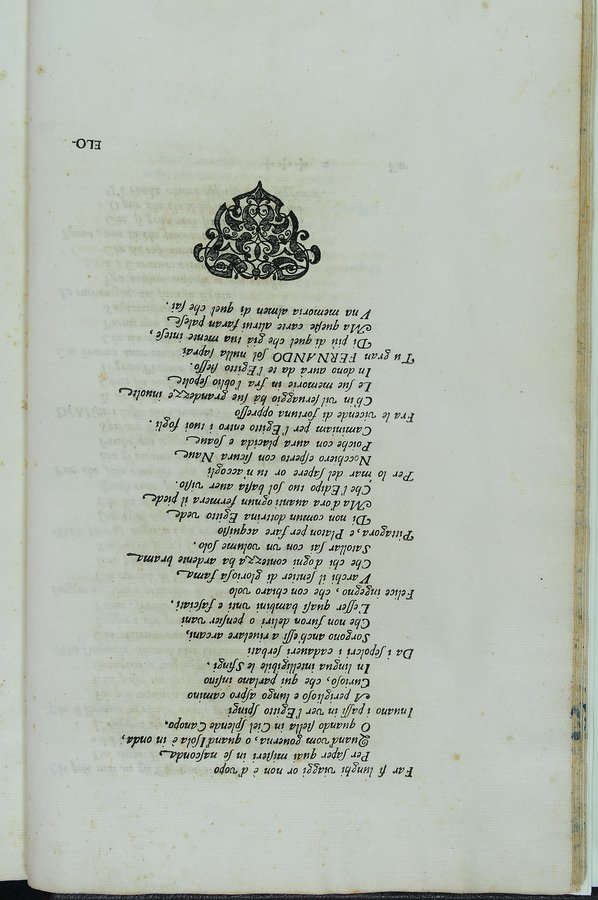 Far ſi lunghi viaggi or non è d'vopo
Per ſaper quai miſteri in ſe naſconda,
Quand'vom gouerna, o quand'Iſola è in onda,
O quando ſtella in Ciel ſplende Canopo.
Inuano i paſſi in ver l'Egitto ſpingi
A periglioſo e lungo aſpro camino
Curioſo, che qui parlano inſino
In lingua intelligibile le Sfingi.
Da i ſepolcri i cadaueri ſerbati
Sorgono anch'eſſi a riuelare arcani,
Che non furon deliri o penſier vani
L'eſſer quaſi bambini vnti e faſciati.
Felice ingegno, che con chiaro volo
Varchi il ſentier di glorioſa fama
Che chi d'ogni contezza ha ardente brama
Satollar ſai con vn volume ſolo.
Pittagora, e Platon per fare acquiſto
Di non comun dottrina Egitto vede
Ma d'ora auanti ognun fermerà il piede
Che l'Edipo tuo ſol baſta auer viſto.
Per lo mar del ſapere or tu n'accogli
Nocchiero eſperto con ſicura Naue
Poiche con aura placida e ſoaue
Caminiam per l'Egitto entro i tuoi fogli.
Fra le vicende di fortuna oppreſſo
Ch'in vil ſeruaggio hà ſue grandezze inuolte
Le ſue memorie in fra l'oblio ſepolte
In dono aurà da te l'Egitto ſteſſo.
Tu gran FERNANDO ſol nulla ſaprai
Di più di quel che già tua mente inteſe,
Ma queſte carte altrui faran paleſe
Vna memoria almen di quel che ſai.
ELO-